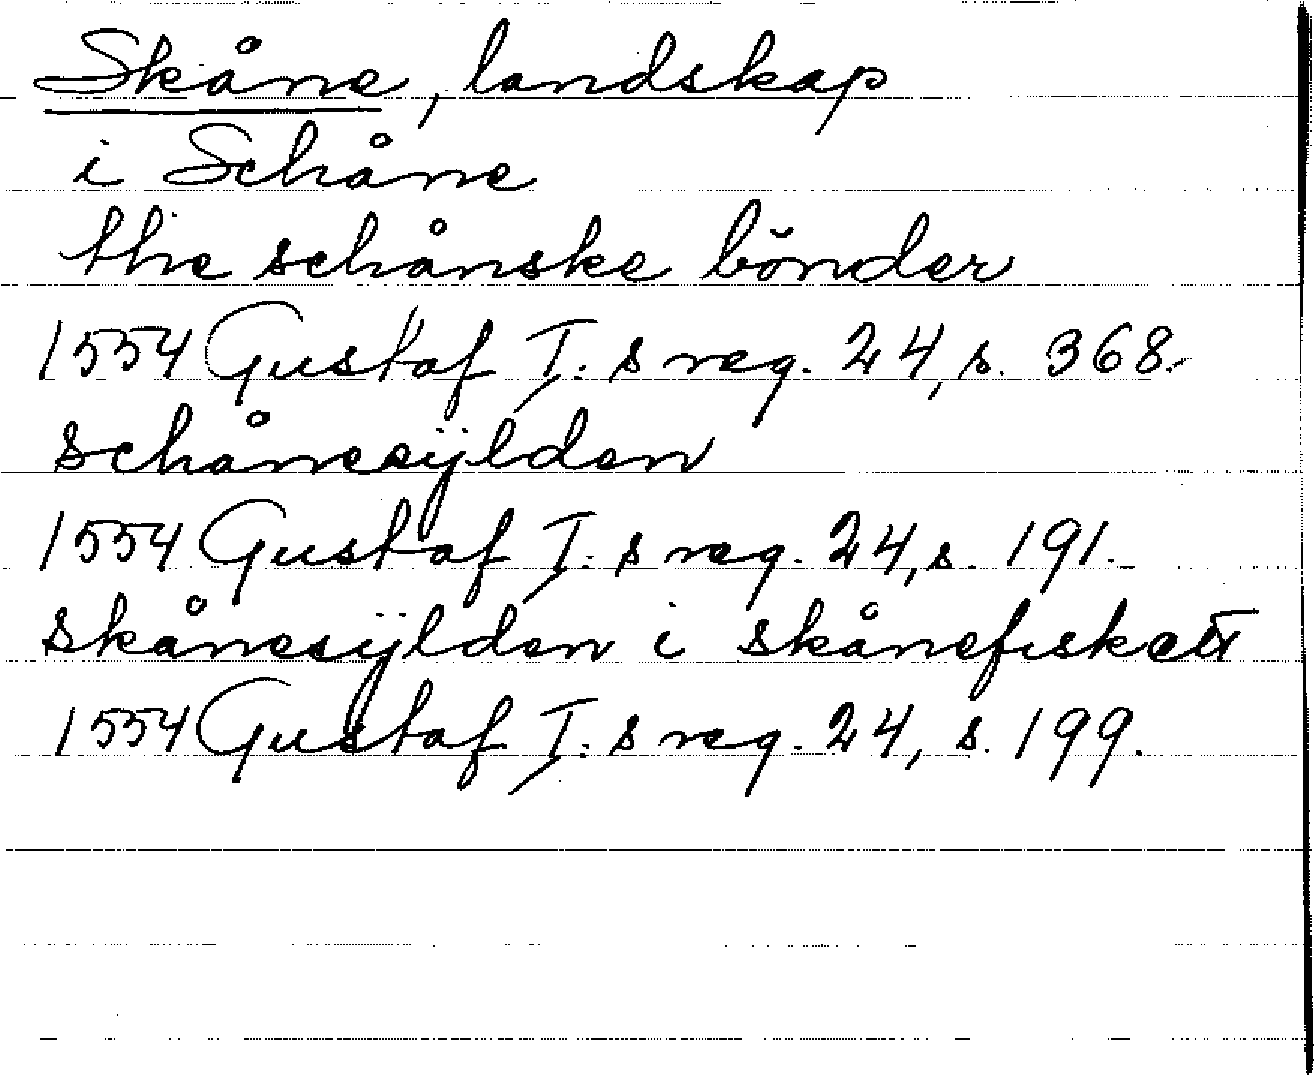 Skåne, landskap
i Schåne
the schånske bönder
1554 Gustaf I:s reg. 24, s. 368.
schånesÿlden
1554 Gustaf I:s reg. 24, s. 191.
skånesÿlden i skånefisket
1554 Gustaf I:s reg. 24, s. 199.